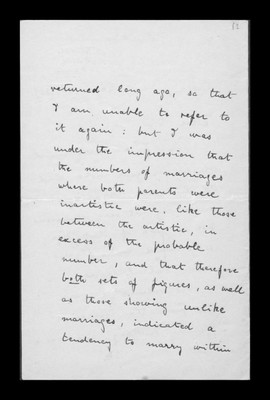 returned long ago, so that
I am unable to refer to
it again: but I was
under the impression that
the numbers of marriages
where both parents were
inartistic were, like those
between the artistic, in
excess of the probable
number, and that therefore
both sets of figures, as well
as those showing unlike
marriages, indicated a
tendency to marry within